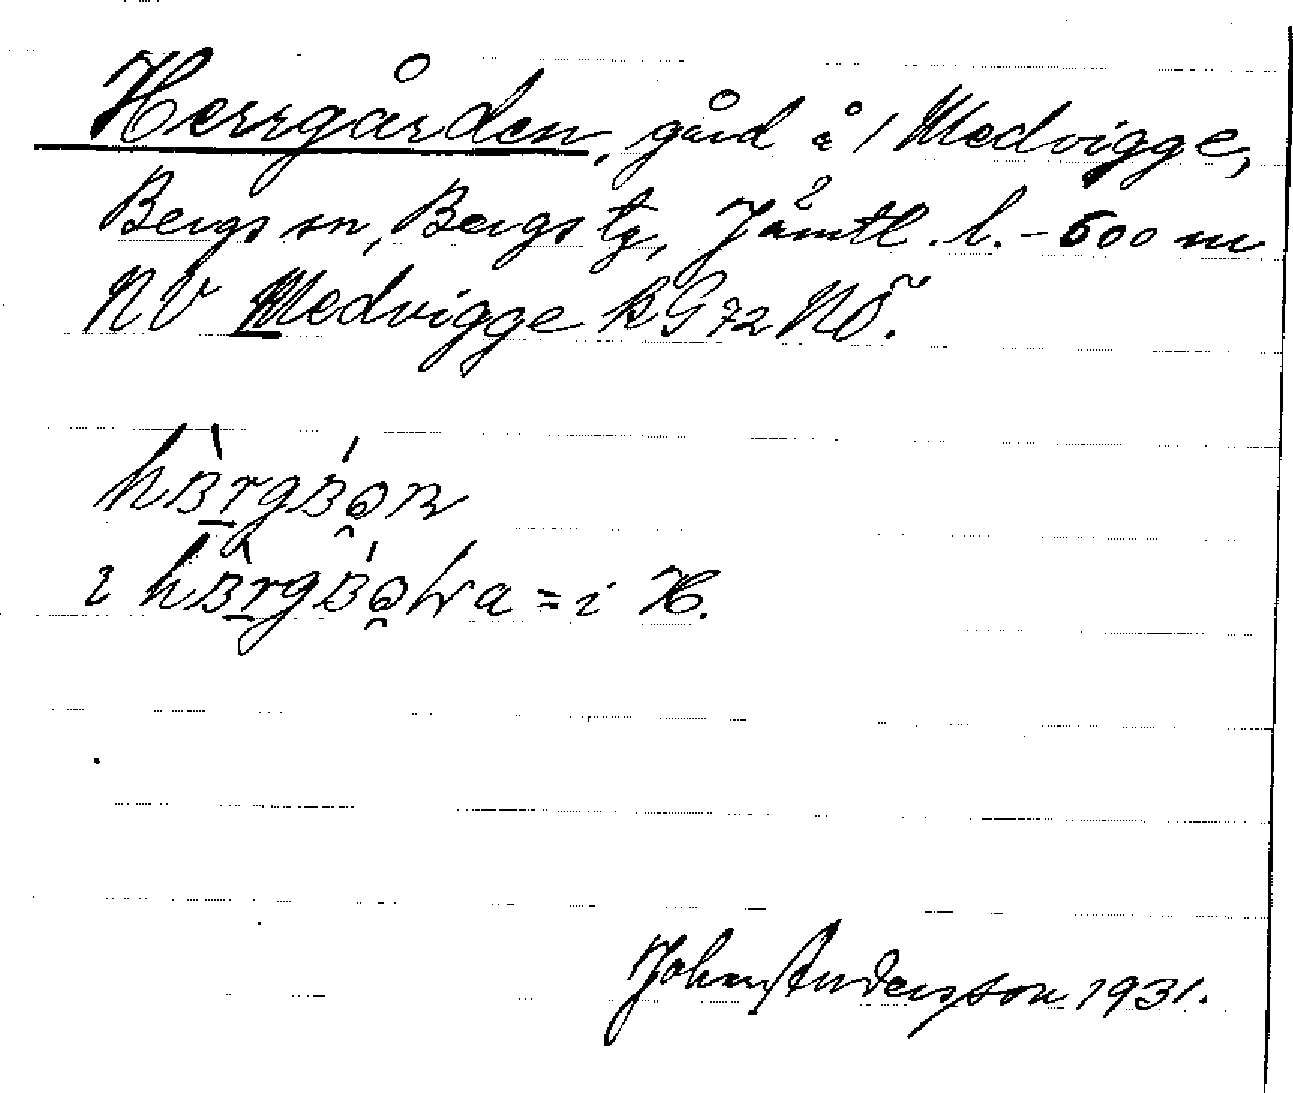 Herrgården, gård å 1 Medvigge,
Bergs sn, Bergs tg, Jämtl. l. - 600 m
NV Medvigge k G 72 NÖ.
i = i H.
John Andersson 1931.